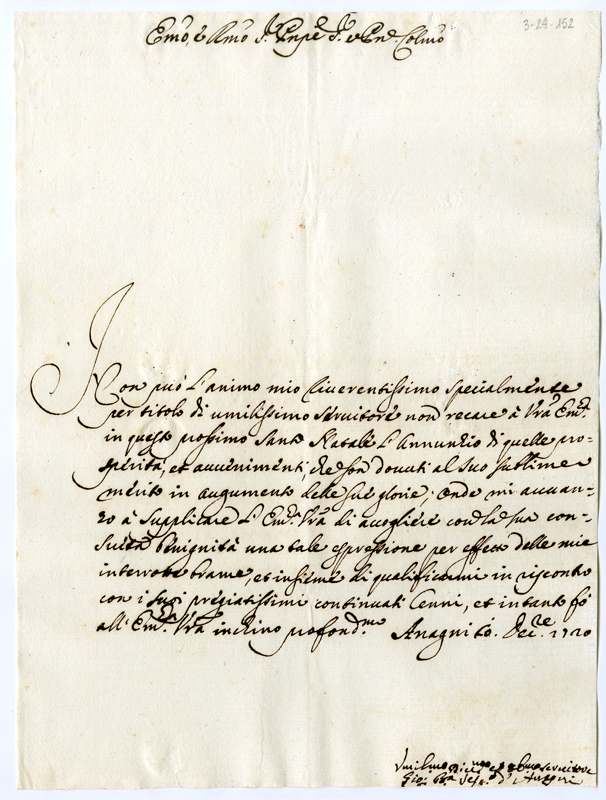 3-29-152
Emo, e Rmo Sr. Pnpe Sr. e Pne. Colmo
Non può l'animo mio riverentissimo specialmente
per titolo di umilissimo servitore non recare à Vra Emza.
in questo prossimo santo Natale l'Annunzio di quelle pro-
sperità, et avvenimenti, che son dovuti al suo sublime
merito in augumento delle sue glorie; onde mi avvan-
zo à supplicare l'Emza. Vra di accogliere con la sua con-
sueta benignità una tale espressione per effetto delle mie
interrotte brame, et insieme di qualificarmi in riscontro
con i suoi pregiatissimi continuati Cenni, et intanto fò
all'Emza. Vra inchino profondmo. Anagni 6. Decre. 1720
Gio: Bta
d'Anagni